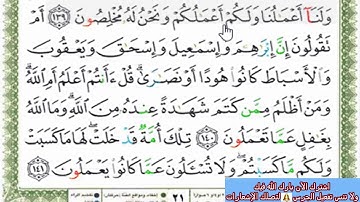 وَلَنَآ أَعْمَٰلُنَا وَلَكُمْ أَعْمَٰلُكُمْ وَنَحْنُ لَهُۥ مُخْلِصُونَ ١٣٩ أَمْ
نَقُولُونَ إِنَّ إِبْرَٰهِـۧمَ وَإِسْمَٰعِيلَ وَإِسْحَٰقَ وَيَعْقُوبَ
وَٱلْأَسْبَاطَ كَانُوا۟ هُودًا أَوْ نَصَٰرَىٰ ۗ قُلْ ءَأَنتُمْ أَعْلَمُ أَمِ ٱللَّهُ ۗ
وَمَنْ أَظْلَمُ مِمَّن كَتَمَ شَهَٰدَةً عِندَهُۥ مِنَ ٱللَّهِ ۗ وَمَا ٱللَّهُ
بِغَٰفِلٍ عَمَّا تَعْمَلُونَ ١٤٠ تِلْكَ أُمَّةٌ قَدْ خَلَتْ ۖ لَهَا مَا كَسَبَتْ
وَلَكُم مَّا كَسَبْتُمْ ۖ وَلَا تُسْـَٔلُونَ عَمَّا كَانُوا۟ يَعْمَلُونَ ١٤١
٢١
اشترك الآن بارك الله فيك
ولا تنس تفعيل الجرس لتصلك الإشعارات